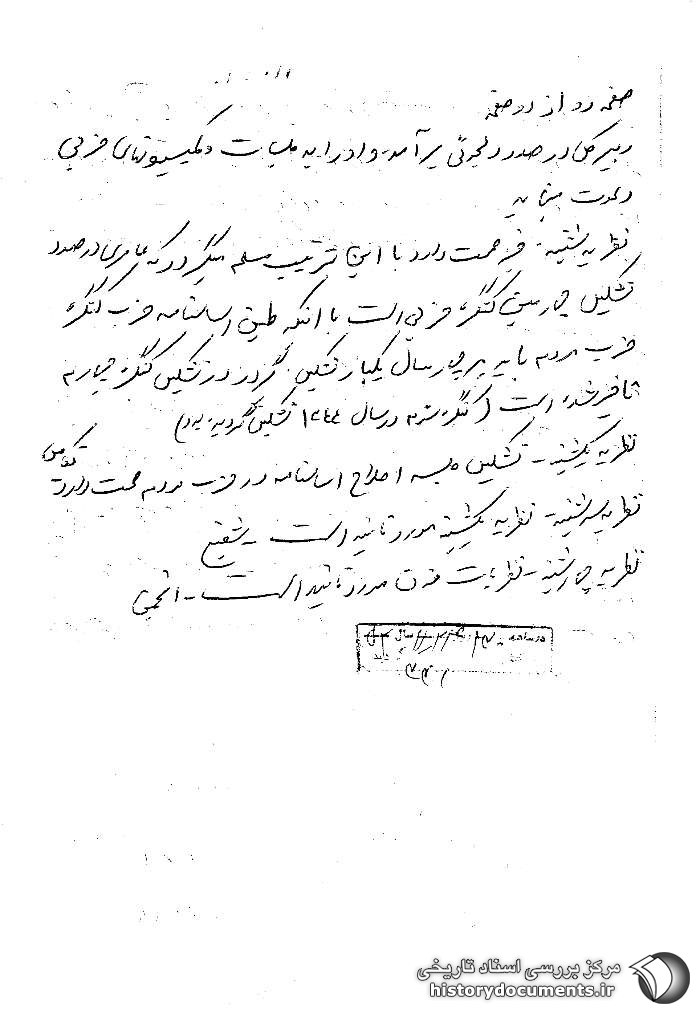 صفحه دو از دو صفحه
دبیر کل در صدد دلجوئی برآمده و او را به جلسات و کمیسیونهای حزبی
دعوت مینماید
نظریه شنبه. خبر صحت دارد با این ترتیب مسلم میگردد که عامری در صدد
تشکیل چهارمین کنگره حزبی است با آنکه طبق اساسنامه حزب کنگره
حزب مردم باید هر چهار سال یکبار تشکیل گردد در تشکیل کنگره چهارم
تاخیر شده است (کنگره سوم در سال ۱۳۴۴ تشکیل گردیده بود)
نظریه یکشنبه - تشکیل جلسه اصلاح اساسنامه در حزب مردم صحت دارد.
نظریه سه‌شنبه - نظریه یکشنبه مورد تائید است - شفیع
نظریه چهارشنبه - نظریات فوق مورد تائید است -
مرکز بررسی اسناد تاریخی
historydocuments.ir